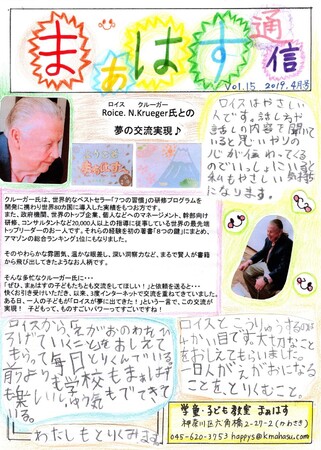 まぁはす通信
Vol.15 2019.4月号
ロイス クルーガー
Roice. N.Krueger氏との
夢の交流実現♪
ロイスはやさしい
人です。話し方が
話しの内容で聞いて
いると思いやりの
心が伝わってくる
のでいっしょにいると
私もやさしい気持
になります。
クルーガー氏は、世界的なベストセラー「7つの習慣」の研修プログラムを
開発に携わり世界80カ国に導入した実績をもつお方です。
また、政府機関、世界のトップ企業、個人などへのマネージメント、幹部向け
研修、コンサルタントなど20,000人以上の指導に従事している世界の最先端
トップリーダーのお一人です。それらの経験を初の著書「8つの鍵」にまとめ、
アマゾンの総合ランキング1位にもなりました。
そのやわらかな雰囲気、温かな眼差し、深い洞察力など、まるで賢人が書籍
から飛び出してきたようなお人柄です。
そんな多忙なクルーガー氏に…
「ぜひ、まぁはすの子どもたちとも交流をしてほしい!」と依頼を送ると…
快くお引き受けいただき、以来、3度インターネットで交流を重ねてきていました。
ある日、一人の子どもが「ロイスが夢に出てきた!」という一言で、この交流が
実現! 子どもって、ものすごいパワーってすごいですね!
ロイスから、えがおのわをひ
ろげていくことをおしえて
もらって毎日とりくんでいる。
前よりも学校もまぁはす
も楽しいし、ゆう気もでてきて
いる。
わたしもとりくみます。
ロイスと こうりゅうするのは
4かい目です。大切なこと
をおしえてもらいました。
一日一人がえがおになる
ことを、とりくむこと。
学童・子ども教室 まぁはす
神奈川区六角橋2-27-2(かわさき)
045-620-3753 happys@kmahasu.com